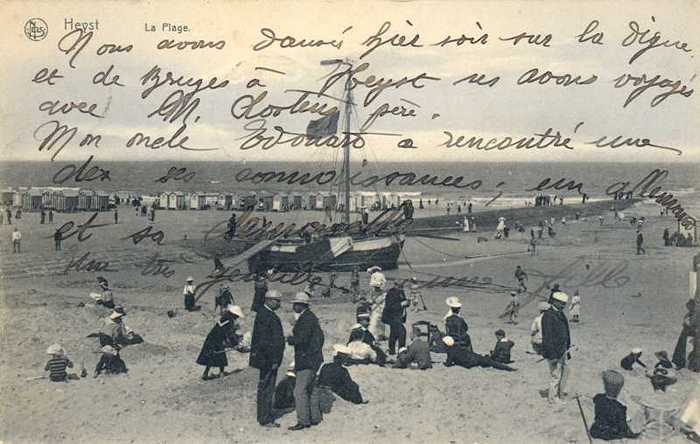 Heyst La Plage.
Nous avons dansé hier soir sur la digue
et de Bruges à Heyst ns avons voyagé
avec M. père.
Mon oncle Edouard a rencontré une
des ses connaissances; un allemand
et sa
une fille